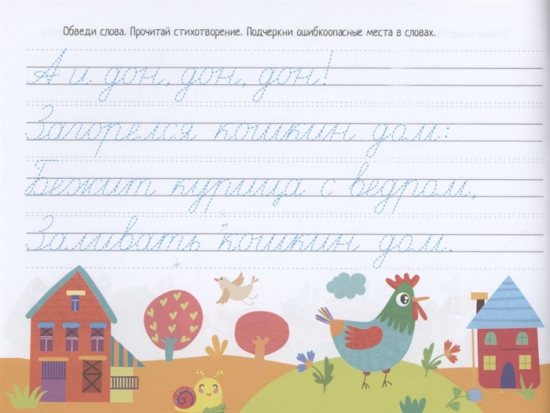 Обведи слова. Прочитай стихотворение. Подчеркни ошибкоопасные места в словах.
А и дон, дон, дон!
Загорелся кошкин дом:
Бежит курица с ведром,
Заливать кошкин дом.